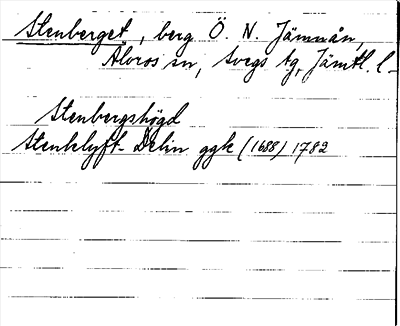 Stenberget, berg Ö. N. Jämnån,
Älvros sn, Svegs tg, Jämtl. l-
Stenbergshögd
Stenklyft- Delin ggk (1688) 1782